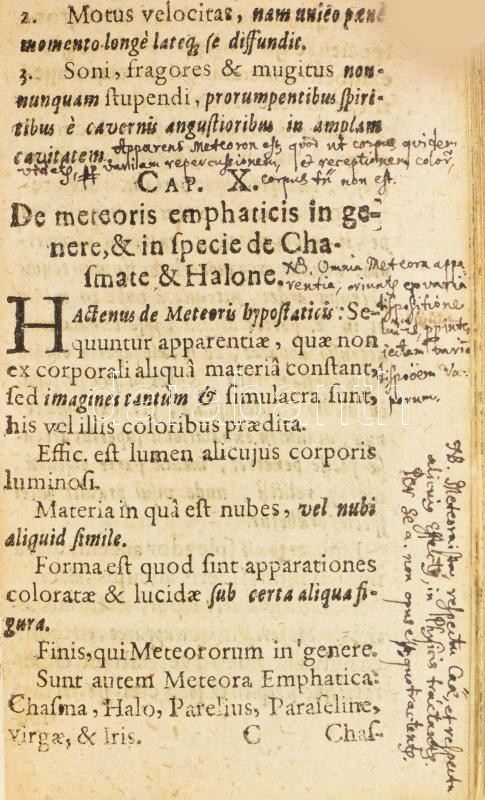 2. Motus velocitas, nam unico pænè
momento longè lateq; se diffundit.
3. Soni, fragores & mugitus non-
nunquam stupendi, prorumpentibus spiri-
tibus è cavernis angustioribus in amplam
cavitatem.
Apparens Meteoron est, quod ut corpus quidem
videtur variam repercussionem, et receptionem color,
corpus tn non est.
CAP. X.
De meteoris emphaticis in ge-
nere, & in specie de Cha-
smate & Halone.
NB. Omnia Meteora appa
rentia, oriuntur ex varia
dispositione
HActenus de Meteoris hypostaticis: Se-
quuntur apparentiæ, quæ non
ex corporali aliquâ materiâ constant,
sed imagines tantùm & simulacra sunt,
his vel illis coloribus prædita.
varia
porum.
Effic. est lumen alicujus corporis
luminosi.
Materia in quâ est nubes, vel nubi
aliquid simile.
Forma est quod sint apparationes
coloratæ & lucidæ sub certa aliqua fi-
gura.
Finis, qui Meteororum in genere.
Sunt autem Meteora Emphatica:
Chasma, Halo, Parelius, Paraseline,
virgæ, & Iris. C Chas-
NB. Meteora respectu et respectu
in Physicis
se a. non opus est
darabanth